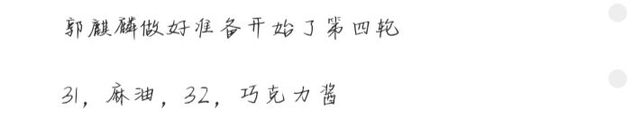 郭麒麟做好准备开始了第四轮
31，麻油，32，巧克力酱